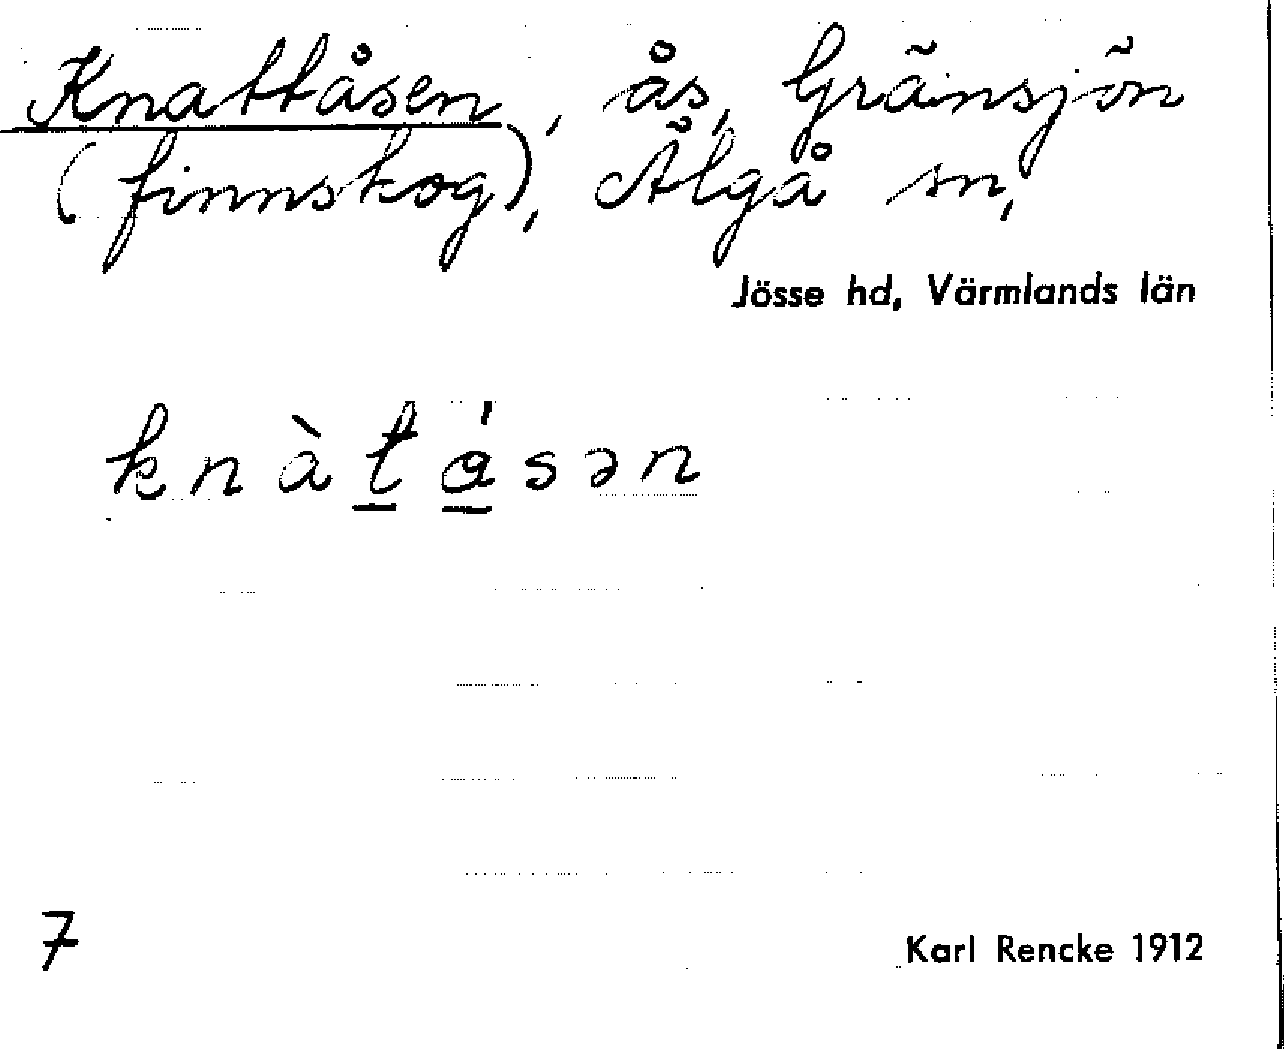 Knattåsen, ås, Gränsjön
(finnskog), Älgå sn,
Jösse hd, Värmlands län
k n à t̲ á̲ s ə n
7
Karl Rencke 1912